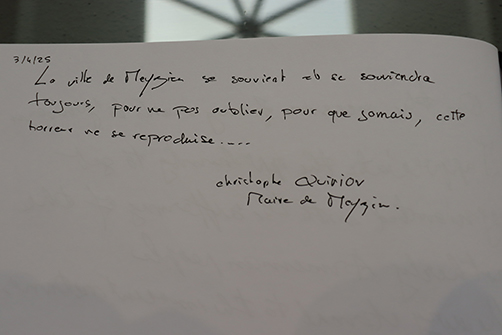 3/4/25
La ville de Meyzieu se souvient et se souviendra
toujours, pour ne pas oublier, pour que jamais, cette
horreur ne se reproduise.....
christophe QUINIOU
Maire de Meyzieu.